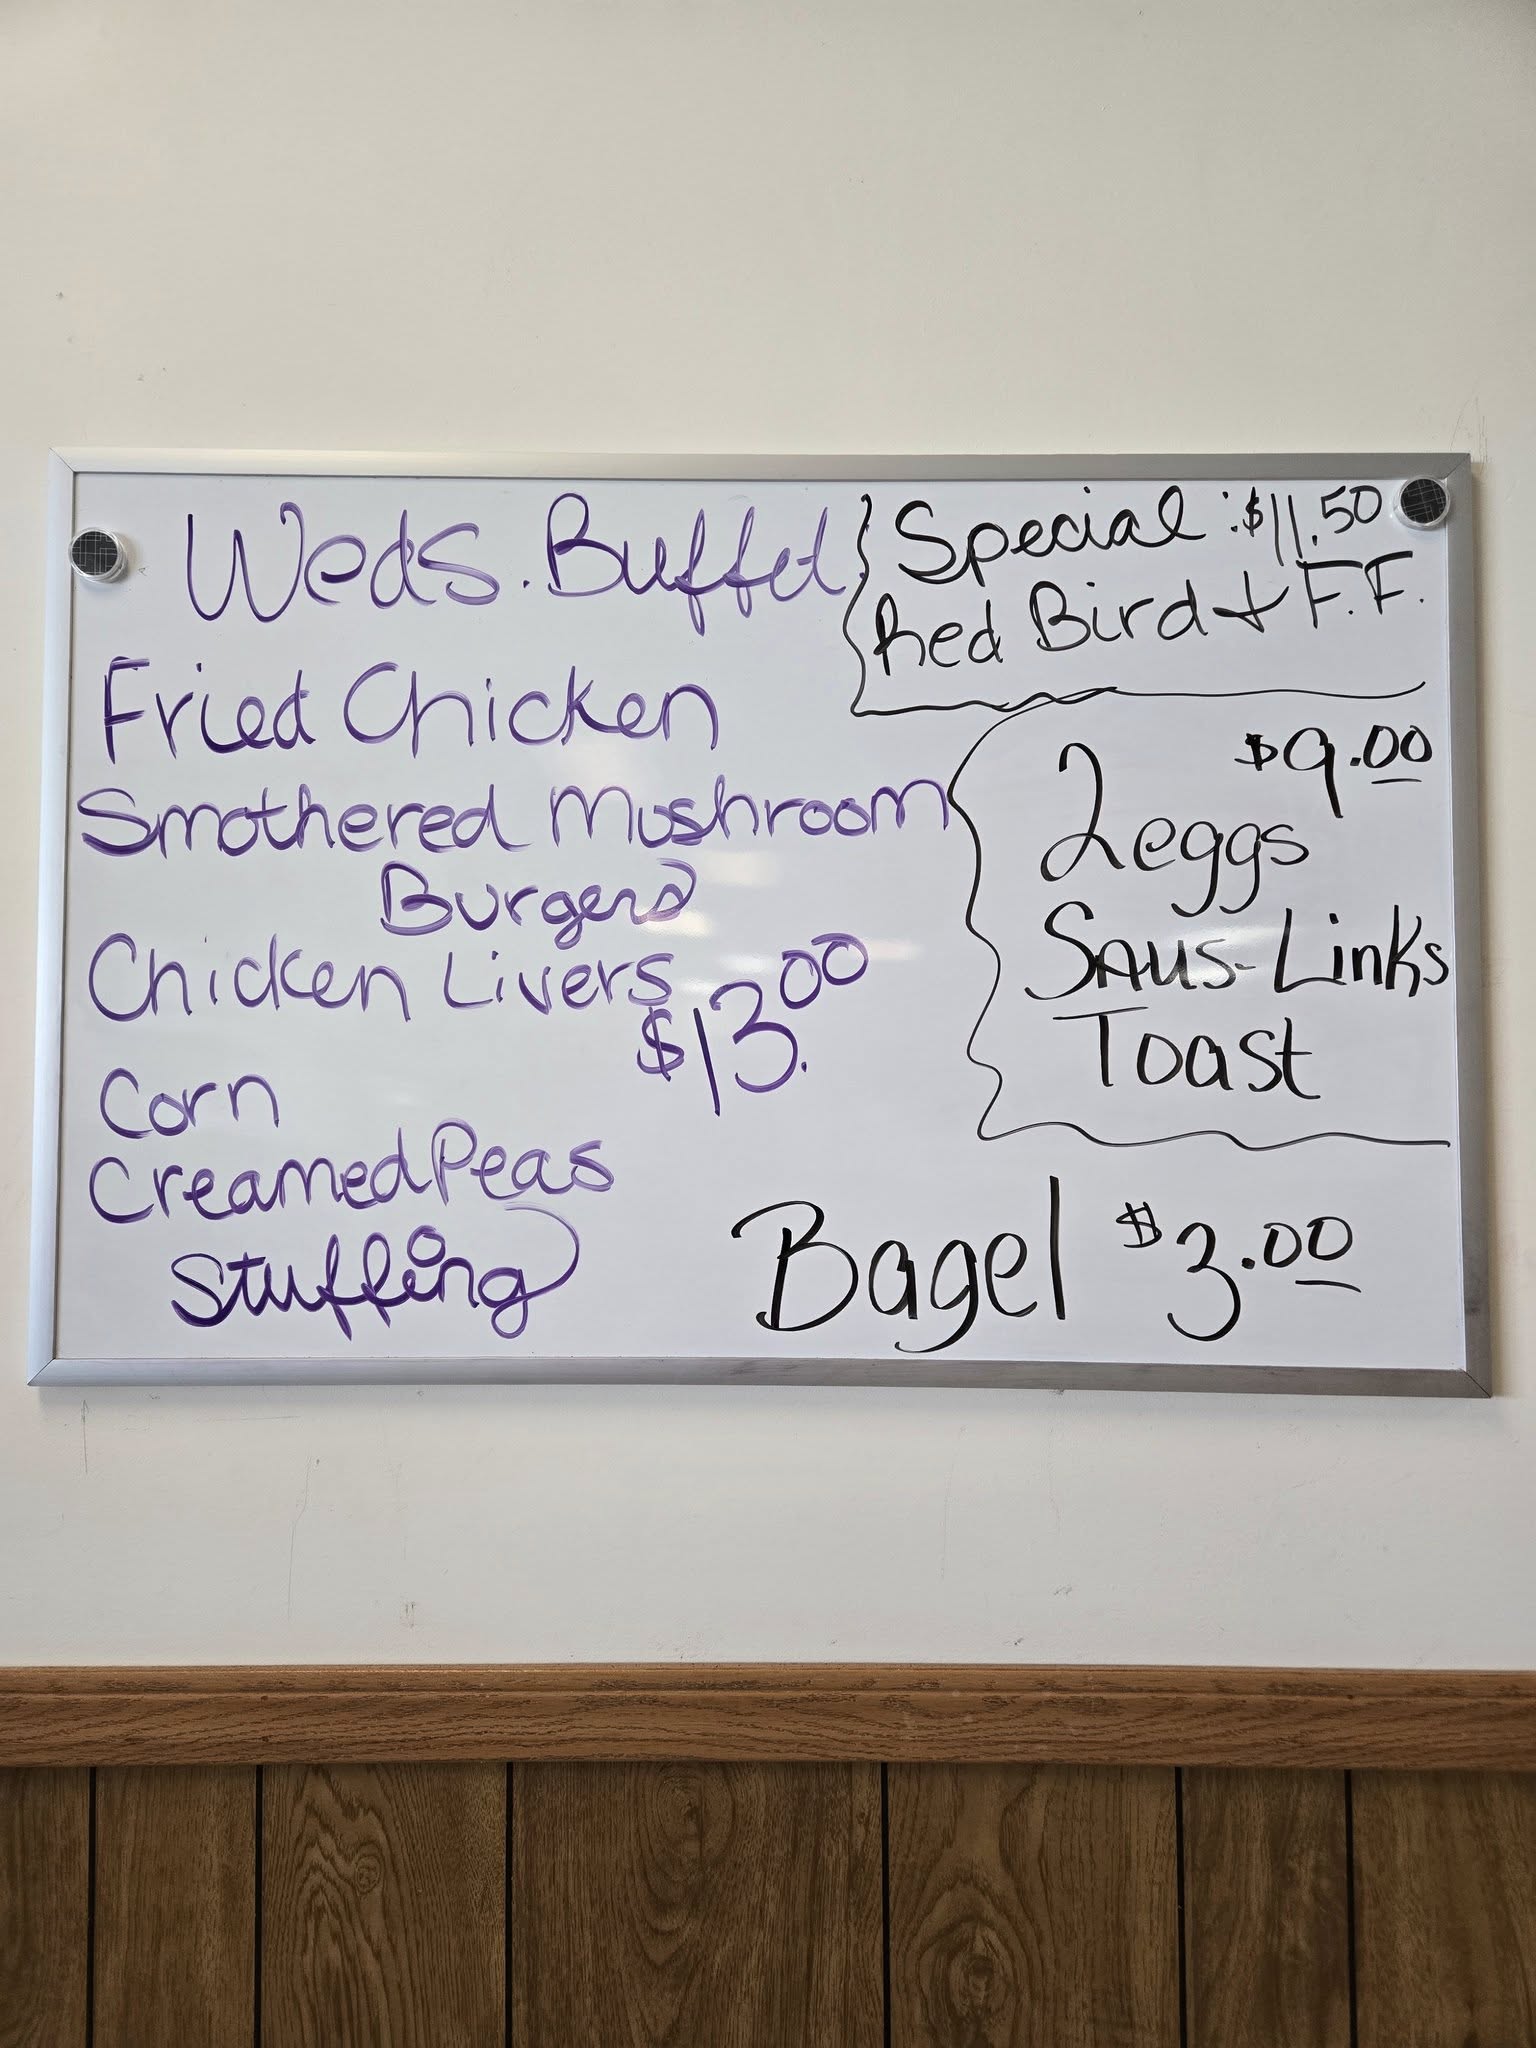 Weds. Buffet
Fried Chicken
Smothered Mushroom
Burgers
Chicken Livers
$13.00
Corn
Creamed Peas
Stuffing
Special: $11.50
Red Bird & F.F.
$9.00
2 eggs
Saus-Links
Toast
Bagel $3.00